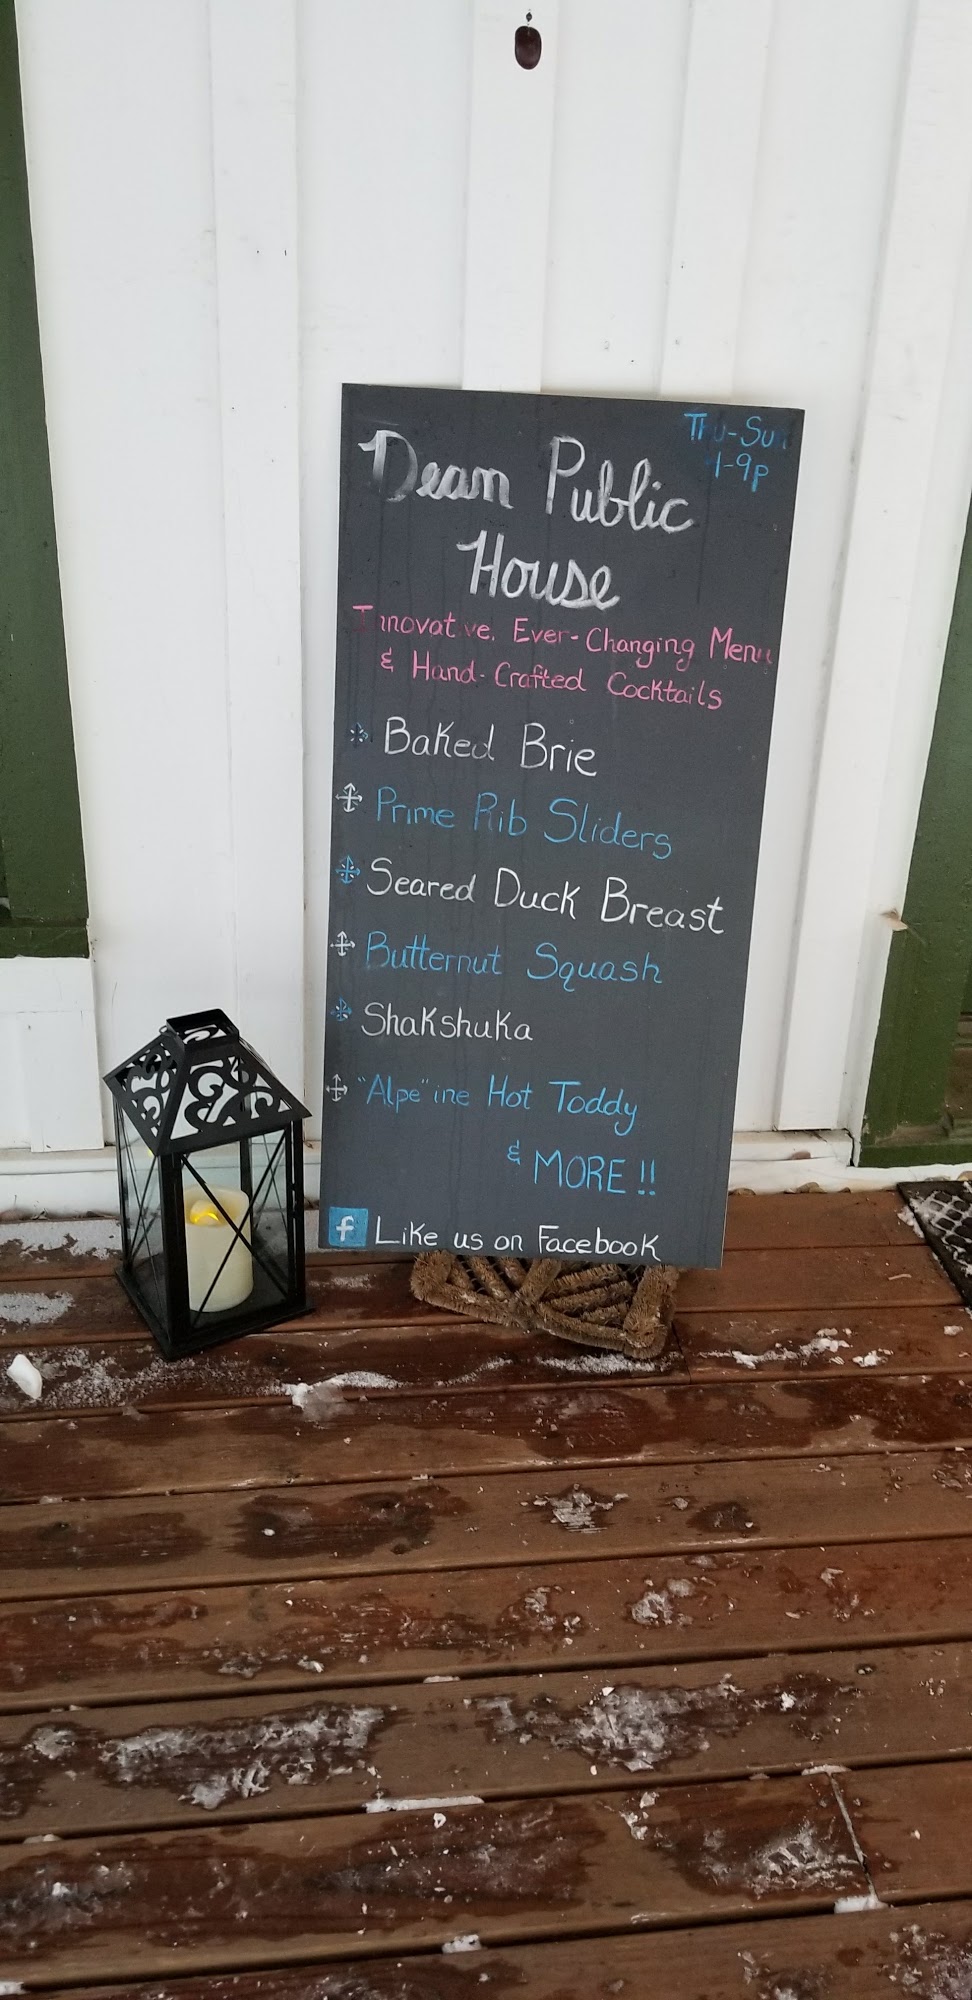 Thu-Sun
Dean Public
House
Innovative, Ever-Changing Menu
& Hand-Crafted Cocktails
Baked Brie
Prime Rib Sliders
Seared Duck Breast
Butternut Squash
Shakshuka
"Alpe"ine Hot Toddy
& MORE!!
f Like us on Facebook